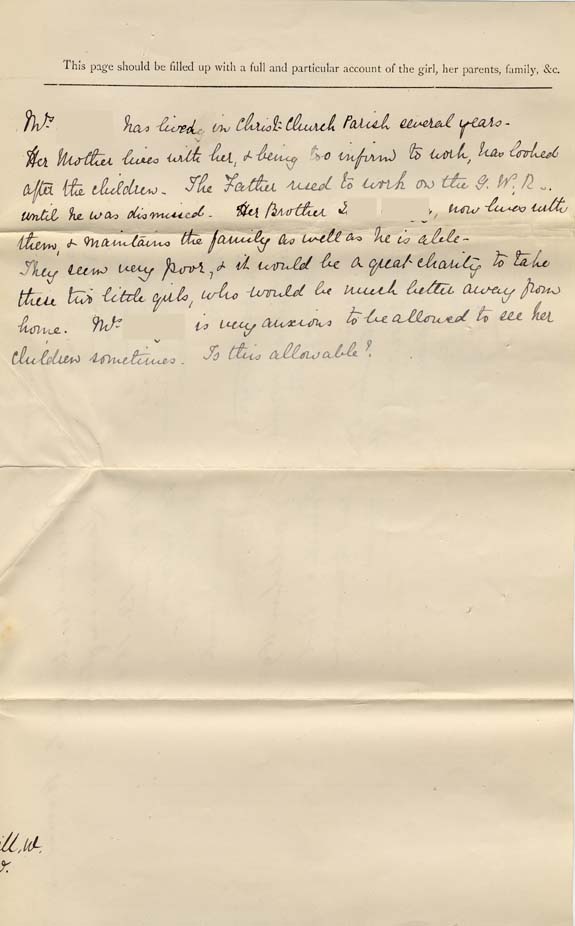 This page should be filled up with a full and particular account of the girl, her parents, family, &c.
Mrs has lived in Christ Church Parish several years-
Her Mother lives with her, & being too infirm to work, has looked
after the children. The Father used to work on the G. W. R.
until he was dismissed. Her Brother E , now lives with
them, & maintains the family as well as he is able-
They seem very poor, & it would be a great charity to take
these two little girls, who would be much better away from
home. Mrs is very anxious to be allowed to see her
children sometimes. Is this allowable?
ill, W.